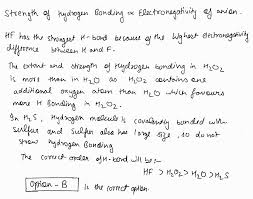 Strength of hydrogen Bonding ∝ Electronegativity of anion.
HF has the strongest H-bond because of the highest electronegativity
difference between H and F.
The extent and strength of Hydrogen bonding in H₂O₂
is more than in H₂O as H₂O₂ contains one
additional oxygen atom than H₂O which favours
more H Bonding in H₂O₂.
In H₂S, Hydrogen molecule is covalently bonded with
sulfur and sulfur also has large size, so do not
show hydrogen Bonding
The correct order of H-bond will be:-
HF > H₂O₂ > H₂O > H₂S
Option-B is the correct option.